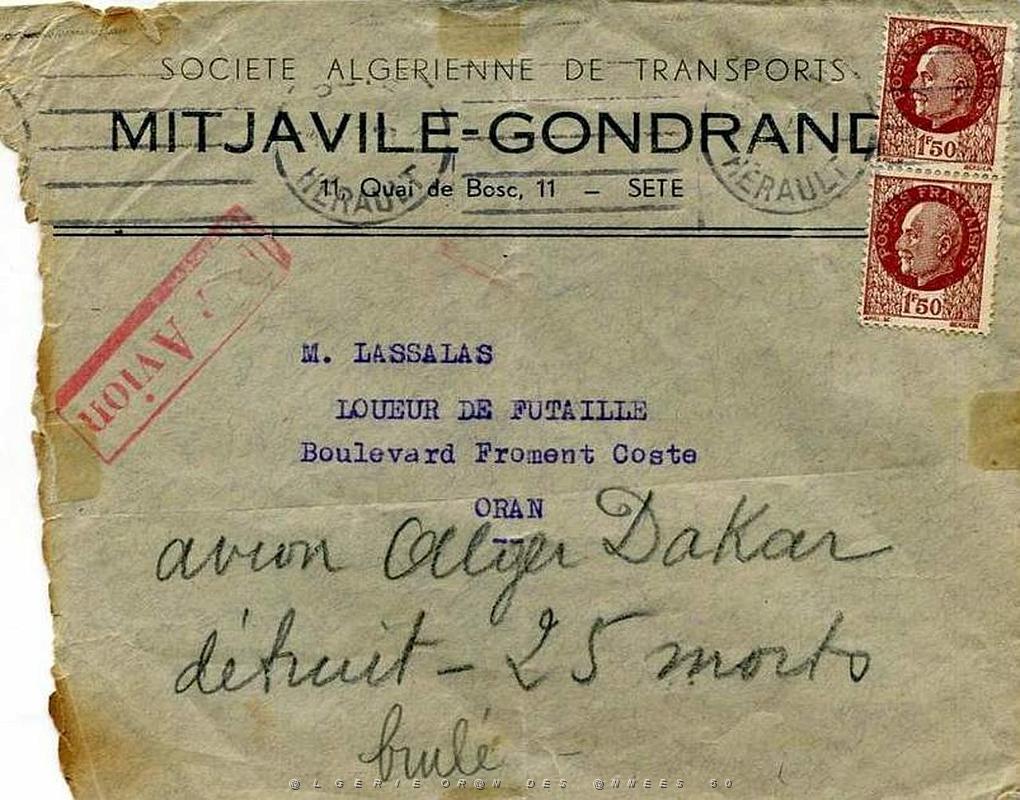 SOCIETE ALGERIENNE DE TRANSPORTS
MITJAVILE-GONDRAND
11, Quai de Bosc, 11 — SETE
HERAULT
HERAULT
POSTES FRANÇAISES
1F50
POSTES FRANÇAISES
1F50
Avion
M. LASSALAS
LOUEUR DE FUTAILLE
Boulevard Froment Coste
ORAN
avion Alger Dakar
détruit - 25 morts
brulé -
@LGERIE OR@N DES @NNEES 50